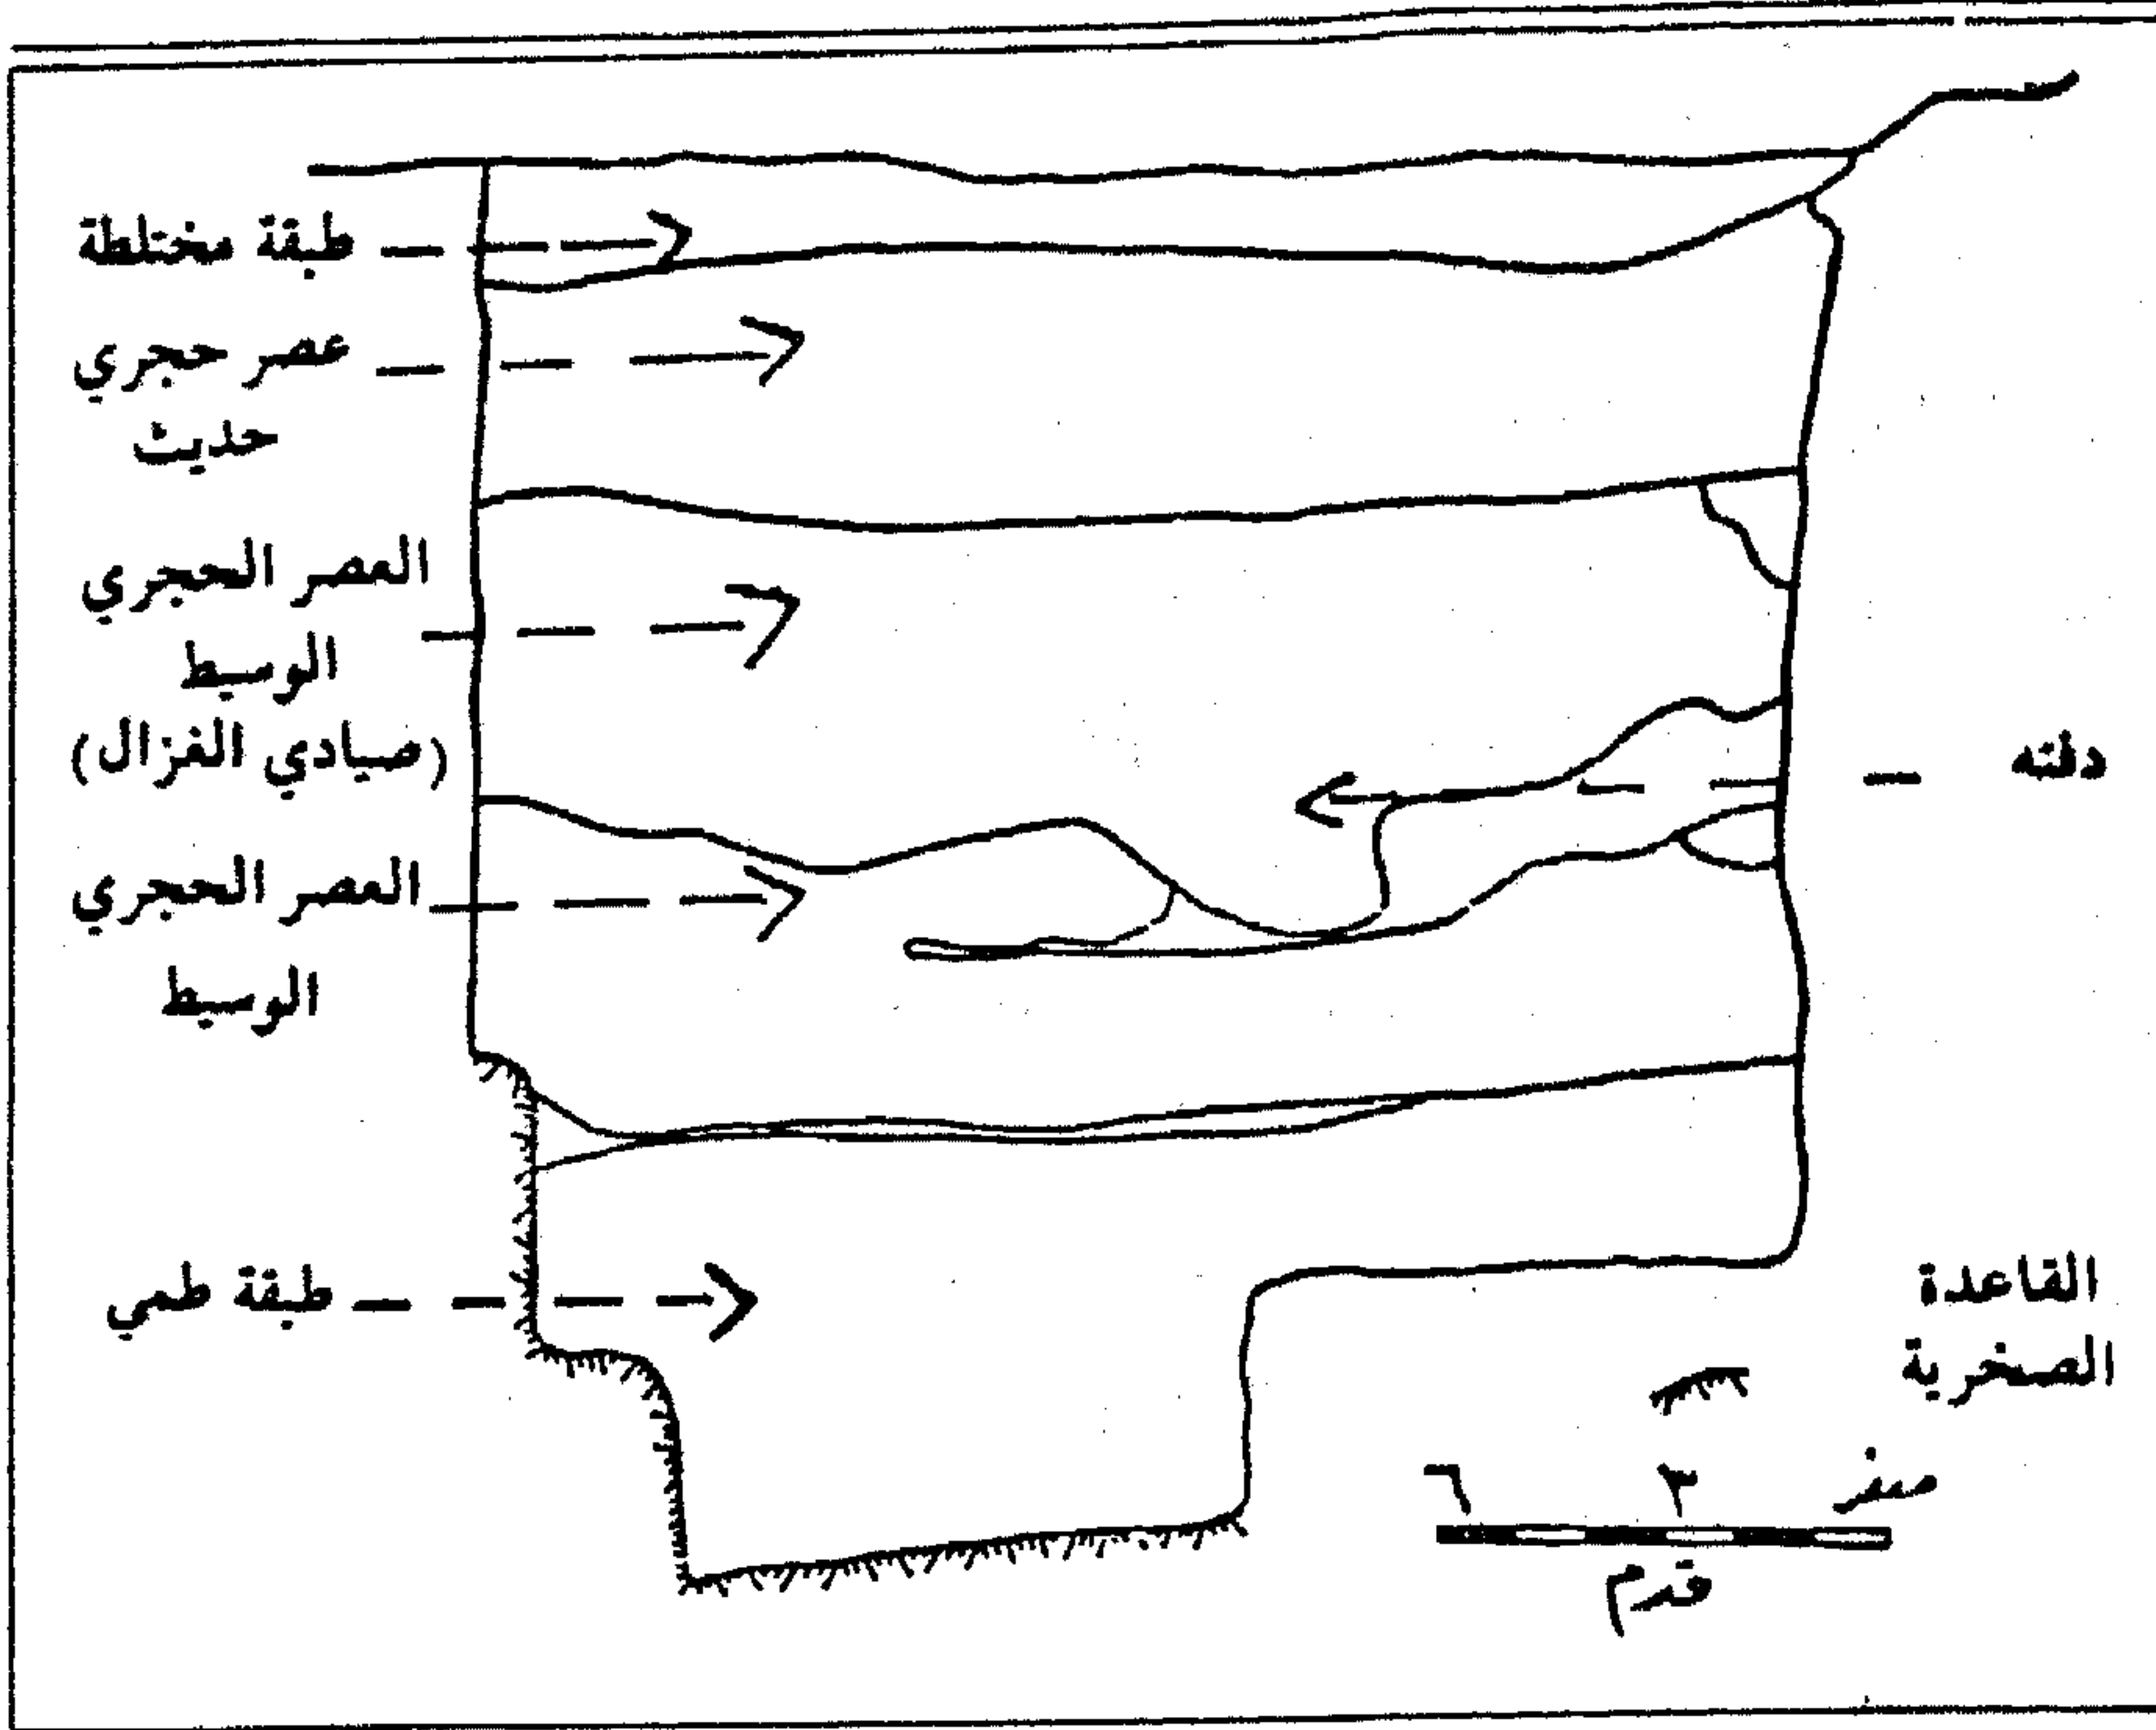 طبقة مختلطة
عصر حجري
حديث
العصر الحجري
الوسيط
(صيادي الغزال)
دفنه
العصر الحجري
الوسيط
طبقة طمي
القاعدة
الصخرية
صفر ٣ ٦
قدم